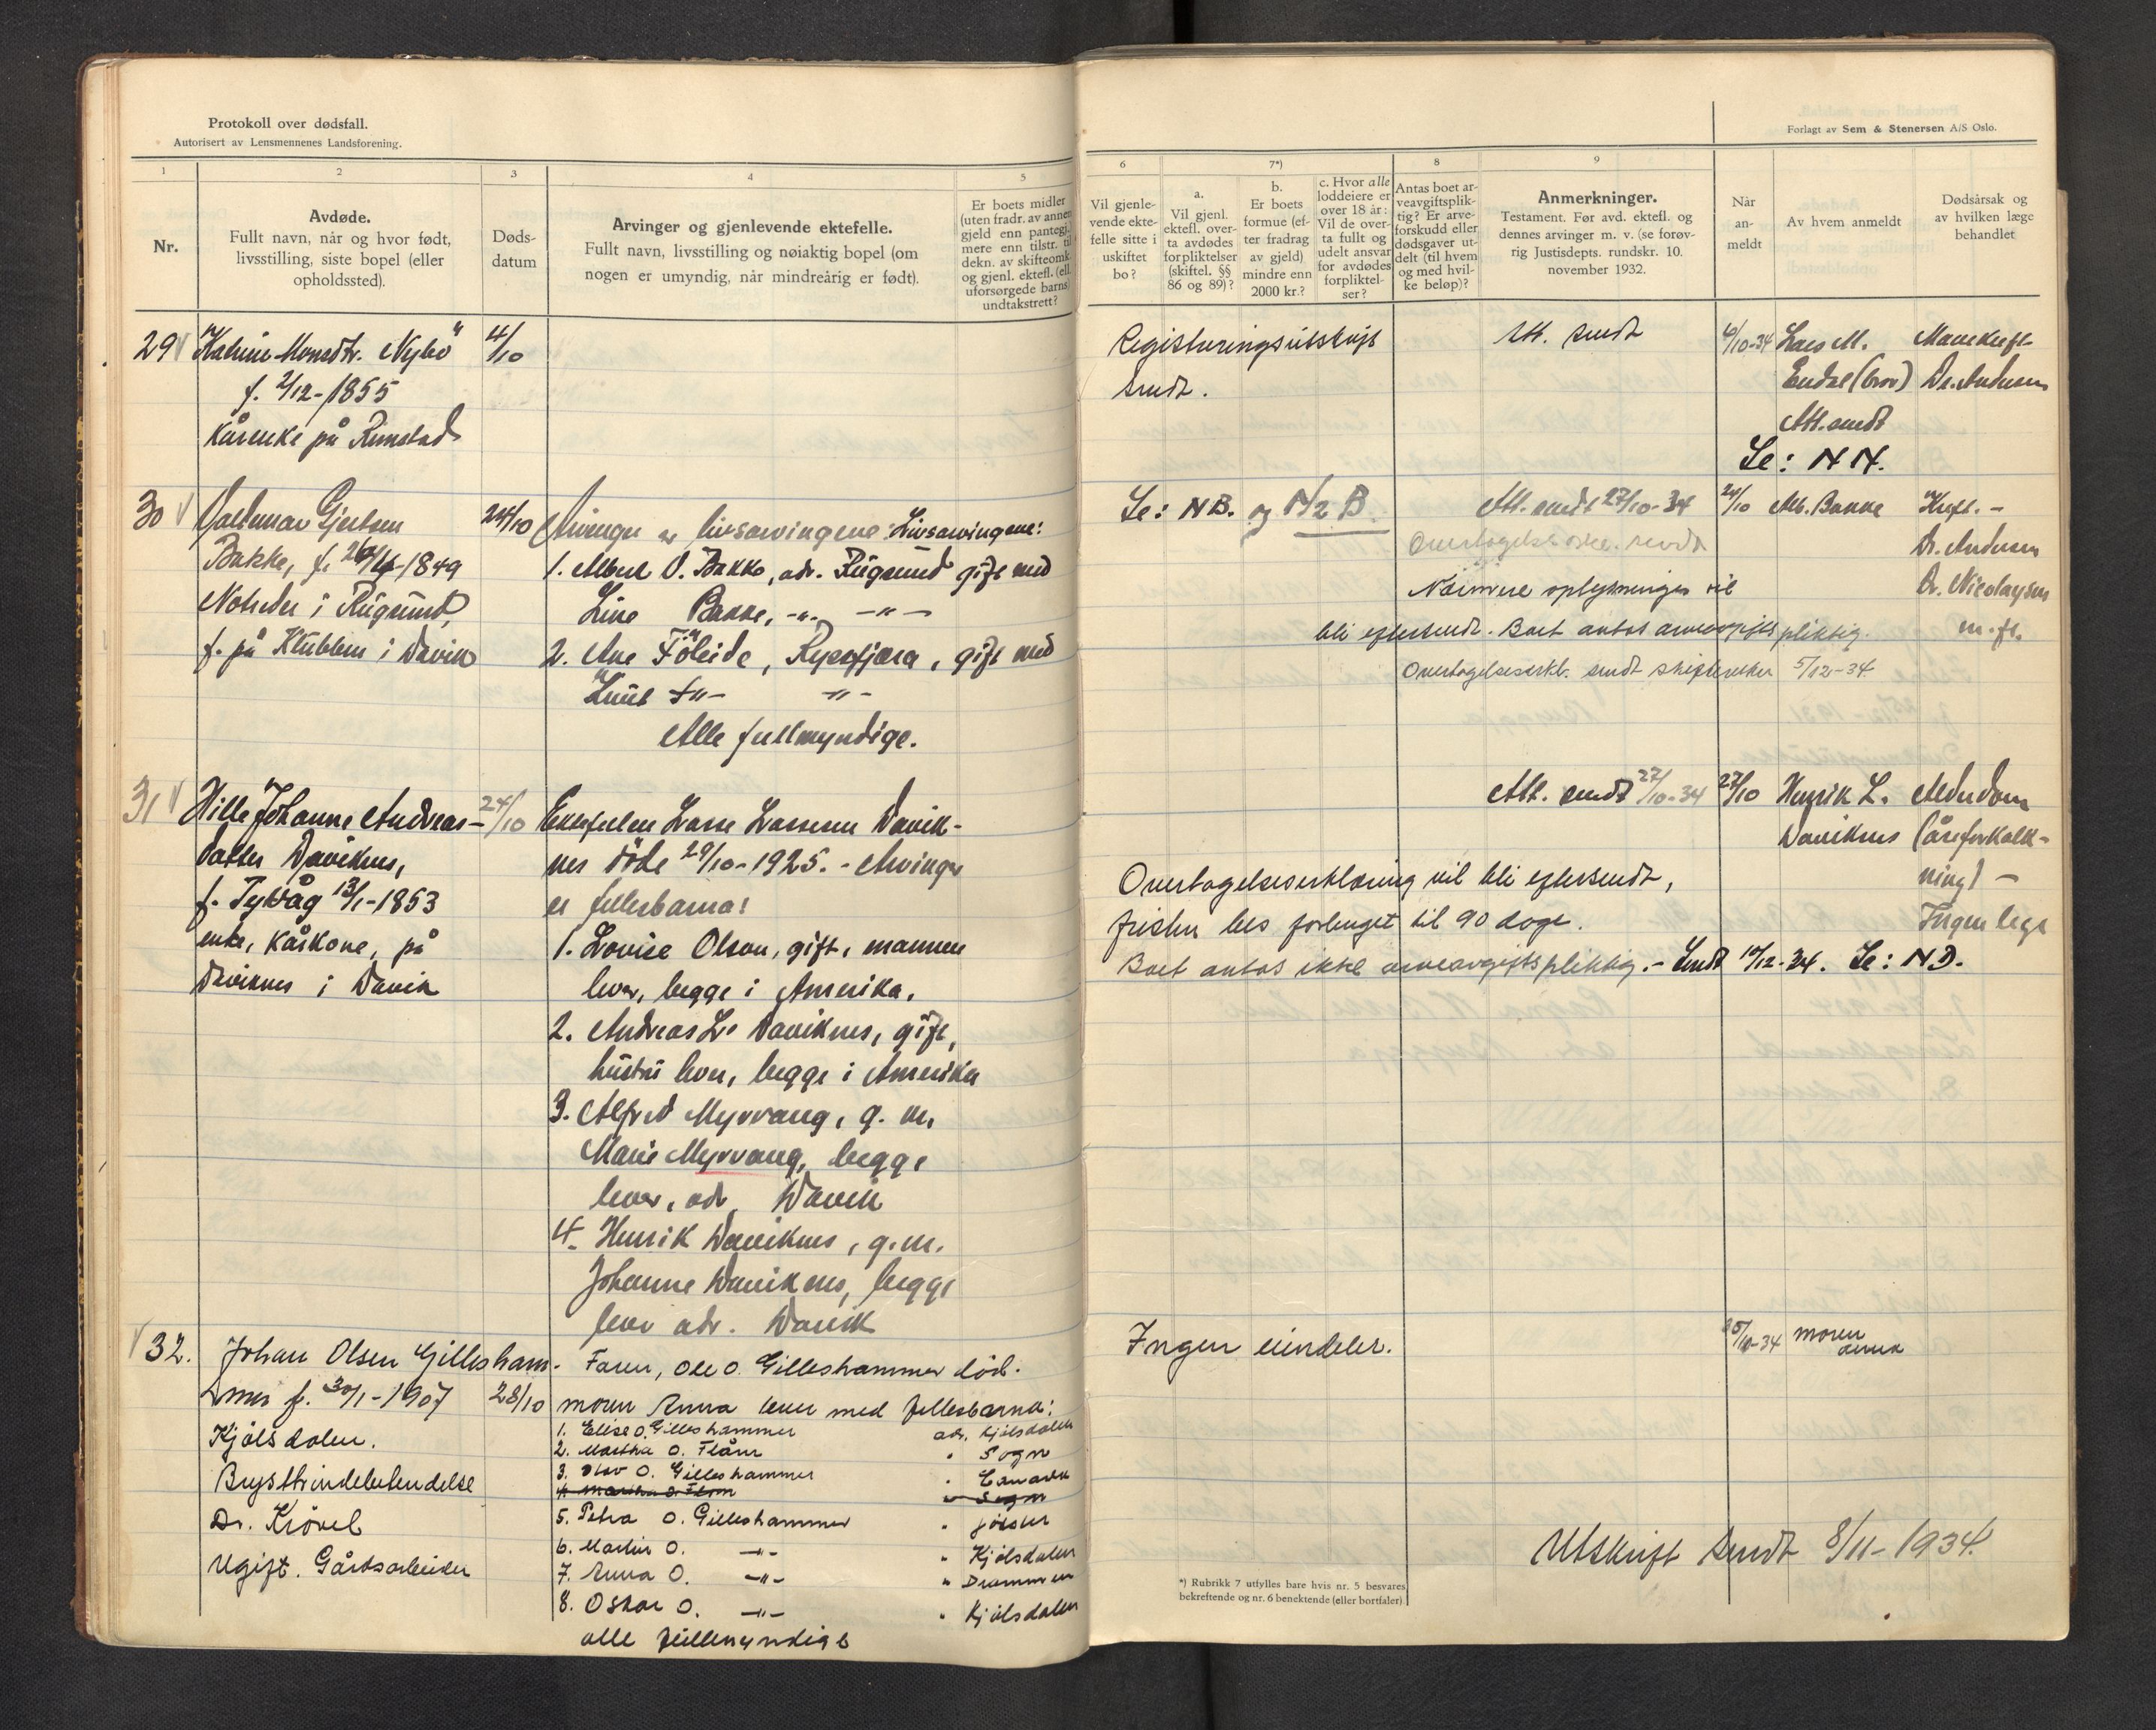 Protokoll over dødsfall.
Autorisert av Lensmennenes Landsforening.
1
2
3
4
5
Nr.
Avdøde.
Fullt navn, når og hvor født,
livsstilling, siste bopel (eller
opholdssted).
Døds-
datum
Arvinger og gjenlevende ektefelle.
Fullt navn, livsstilling og nøiaktig bopel (om
nogen er umyndig, når mindreårig er født).
Er boets midler
(uten fradr. av annen
gjeld enn pantegj.
mere enn tilstr. til
dekn. av skifteomk.
og gjenl. ektefl. (ell.
uforsørgede barns)
undtakstrett?
29
Katrine Monsdtr. Nybö
4/10
f. 2/12-1855
Kårenke på Rimstad
30
Valdemar Gjertsen
24/10
Arvinger er livsarvingene: Livsarvingene:
Bakke, f. 26/4-1849
1. Albert V. Bakke, adr. Rugsund gift med
Notreder i Rugsund,
Line Bakke, -"- -"-
f. på Klubben i Davik
2. Ane Föleide, Ryssfjæra, gift med
Knut F"- -"-
Alle fullmyndige.
31
Hille Johanne Andreas-
24/10
Ektefellen Lasse Lassesen Davik-
datter Daviknes,
nes döde 29/10-1925. - Arvinger
f. Tytvåg 13/1-1853
er fellesbarna:
enke, kårkone, på
1. Lovise Olson, gift, mannen
Daviknes i Davik
lever, begge i Amerika.
2. Andreas L. Daviknes, gift,
hustru lever, begge i Amerika
3. Alfred Myrvang, g. m.
Marie Myrvang, begge
lever, adr. Davik
4. Henrik Daviknes, g.m.
Johanne Daviknes, begge
lever adr. Davik
32.
Johan Olsen Gillesham-
Faren, Ole O. Gilleshammer död.
mer f. 30/1-1907
28/10
moren Anna lever med fellesbarna:
Kjølsdalen.
1. Elise O. Gilleshammer adr. Kjølsdalen
2. Martha O. Flåm " Sogn
Brysthindebetendelse
3. Olav O. Gilleshammer " Canada
4. Martha O. Flom " Sogn
Dr. Krövel
5. Petra O. Gilleshammer " Jölster
Ugift. Gårdsarbeider
6. Martin O. -"- " Kjølsdalen
7. Anna O. -"- " Drammen
8. Oskar O. -"- " Kjølsdalen
alle fullmyndige
Forlagt av Sem & Stenersen A/S Oslo.
6
7*)
8
9
Vil gjenle-
vende ekte-
felle sitte i
uskiftet
bo?
a.
Vil gjenl.
ektefl. over-
ta avdødes
forpliktelser
(skiftel. §§
86 og 89)?
b.
Er boets
formue (ef-
ter fradrag
av gjeld)
mindre enn
2000 kr.?
c. Hvor alle
loddeiere er
over 18 år:
Vil de over-
ta fullt og
udelt ansvar
for avdødes
forpliktel-
ser?
Antas boet ar-
veavgiftsplik-
tig? Er arve-
forskudd eller
dødsgaver ut-
delt (til hvem
og med hvil-
ke beløp)?
Anmerkninger.
Testament. Før avd. ektefl. og
dennes arvinger m. v. (se forøv-
rig Justisdepts. rundskr. 10.
november 1932.
Når
an-
meldt
Av hvem anmeldt
Dødsårsak og
av hvilken læge
behandlet
Registreringsutskrift
Att. sendt
6/10-34
Lars M.
Mavekreft
sendt.
Endal (bror)
Dr. Andersen
Att. sendt
Se: NN.
Se: NB. og N2 B.
Att. sendt 27/10-34
24/10
Alb. Bakke
Kreft. -
Dr. Andersen
Nærmere oplysninger vil
Dr. Nicolaysen
bli eftersendt. Boet antas arveavgiftspliktig.
m. fl.
Overtagelseserkl. sendt skifteretten 5/12-34.
Att. sendt 27/10-34
27/10
Henrik L.
Alderdom
Daviknes
(åreforkalk-
Overtagelseserklæring vil bli eftersendt,
ning) -
fristen bes forlenget til 90 dage.
Ingen lege
Boet antas ikke arveavgiftspliktig. - Sendt 17/12-34. Se: ND.
Ingen eiendeler.
moren
Anna
Utskrift sendt 8/11-1934.
*) Rubrikk 7 utfylles bare hvis nr. 5 besvares
bekreftende og nr. 6 benektende (eller bortfaler)